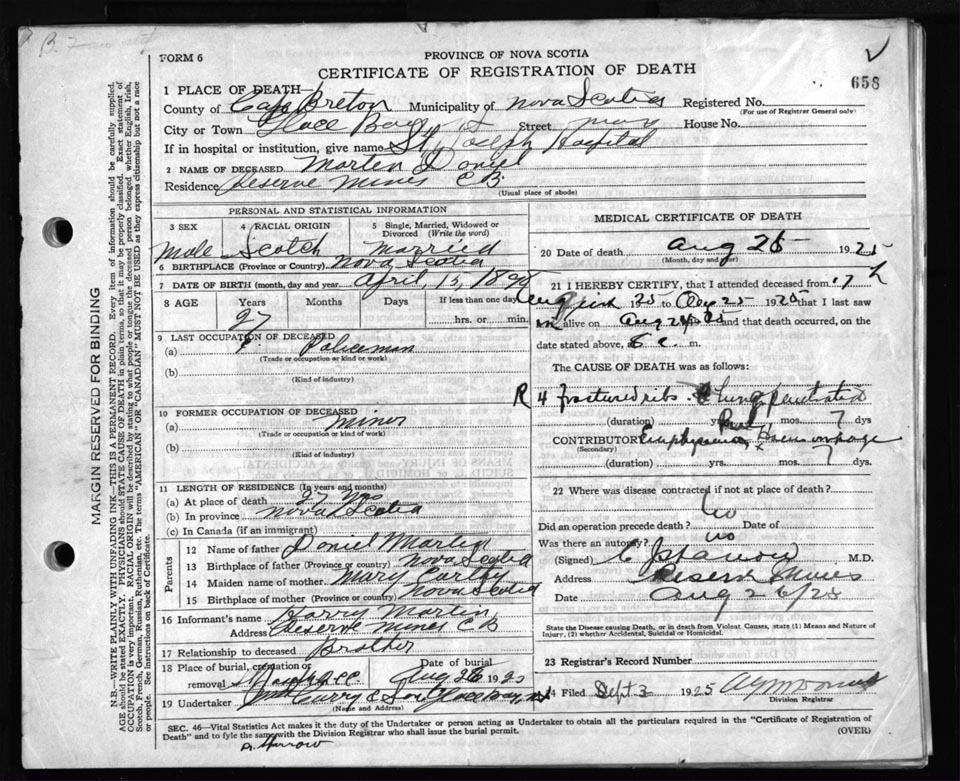 FORM 6
PROVINCE OF NOVA SCOTIA
CERTIFICATE OF REGISTRATION OF DEATH
658
1 PLACE OF DEATH—
County of Cape Breton Municipality of Nova Scotia Registered No.
(For use of Registrar General only)
City or Town Glace Bay Street House No.
If in hospital or institution, give name St Joseph Hospital
2 NAME OF DECEASED Marten Daniel
Residence Reserve Mines C B
(Usual place of abode)
PERSONAL AND STATISTICAL INFORMATION
3 SEX
4 RACIAL ORIGIN
5 Single, Married, Widowed or Divorced (Write the word)
Male Scotch Married
6 BIRTHPLACE (Province or Country) Nova Scotia
7 DATE OF BIRTH (month, day and year) April, 15, 1898
8 AGE Years Months Days If less than one day
27 hrs. or min.
9 LAST OCCUPATION OF DECEASED
(a) Policeman
(Trade or occupation or kind or work)
(b)
(Kind of industry)
10 FORMER OCCUPATION OF DECEASED
(a) Miner
(Trade or occupation or kind of work)
(b)
(Kind of industry)
11 LENGTH OF RESIDENCE (In years and months)
(a) At place of death 27 yrs
(b) In province Nova Scotia
(c) In Canada (if an immigrant)
Parents
12 Name of father Daniel Marten
13 Birthplace of father (Province or country) Nova Scotia
14 Maiden name of mother Mary
15 Birthplace of mother (Province or country) Nova Scotia
16 Informant's name Harry Marten
Address Reserve Mines C B
17 Relationship to deceased Brother
18 Place of burial, cremation or removal Date of burial Aug 28 1925
19 Undertaker Curry & Son Glace Bay, NS
(Name and Address)
MEDICAL CERTIFICATE OF DEATH
20 Date of death Aug 25 1925
(Month, day and year)
21 I HEREBY CERTIFY, that I attended deceased from 17th
Aug 1925 to Aug 25 1925 that I last saw
him alive on Aug 25 and that death occurred, on the
date stated above, at 8 a. m.
The CAUSE OF DEATH was as follows:
R 4 fractured ribs. Lung penetrated
(duration) yrs. mos. 7 dys.
CONTRIBUTORY Emphysema, Haemorrhage
(Secondary)
(duration) yrs. mos. 7 dys.
22 Where was disease contracted if not at place of death?
Did an operation precede death? No Date of
Was there an autopsy? no
(Signed) M.D.
Address Reserve Mines
Date Aug 26/25
State the Disease causing Death, or in death from Violent Causes, state (1) Means and Nature of Injury, (2) whether Accidental, Suicidal or Homicidal.
23 Registrar's Record Number
24 Filed Sept 3 1925
Division Registrar
SEC. 46—Vital Statistics Act makes it the duty of the Undertaker or person acting as Undertaker to obtain all the particulars required in the "Certificate of Registration of
Death" and to fyle the same with the Division Registrar who shall issue the burial permit. (OVER)
MARGIN RESERVED FOR BINDING
N.B.—WRITE PLAINLY WITH UNFADING INK—THIS IS A PERMANENT RECORD. Every item of information should be carefully supplied.
AGE should be stated EXACTLY. PHYSICIANS should STATE CAUSE OF DEATH in plain terms, so that it may be properly classified. Exact statement of
OCCUPATION is very important. RACIAL ORIGIN will be described by stating to what people or tongue the deceased person belonged whether English, Irish,
Scotch, French, German, Russian, Ruthenian, etc. The terms "AMERICAN" OR "CANADIAN" MUST NOT BE USED as they express citizenship but not a race
or people. See instructions on back of Certificate.